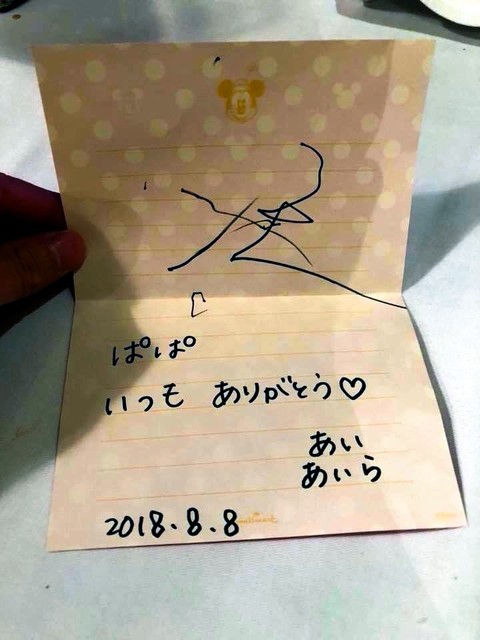 ぱぱ
いつも ありがとう♡
あい
あいら
2018.8.8
Hallmark